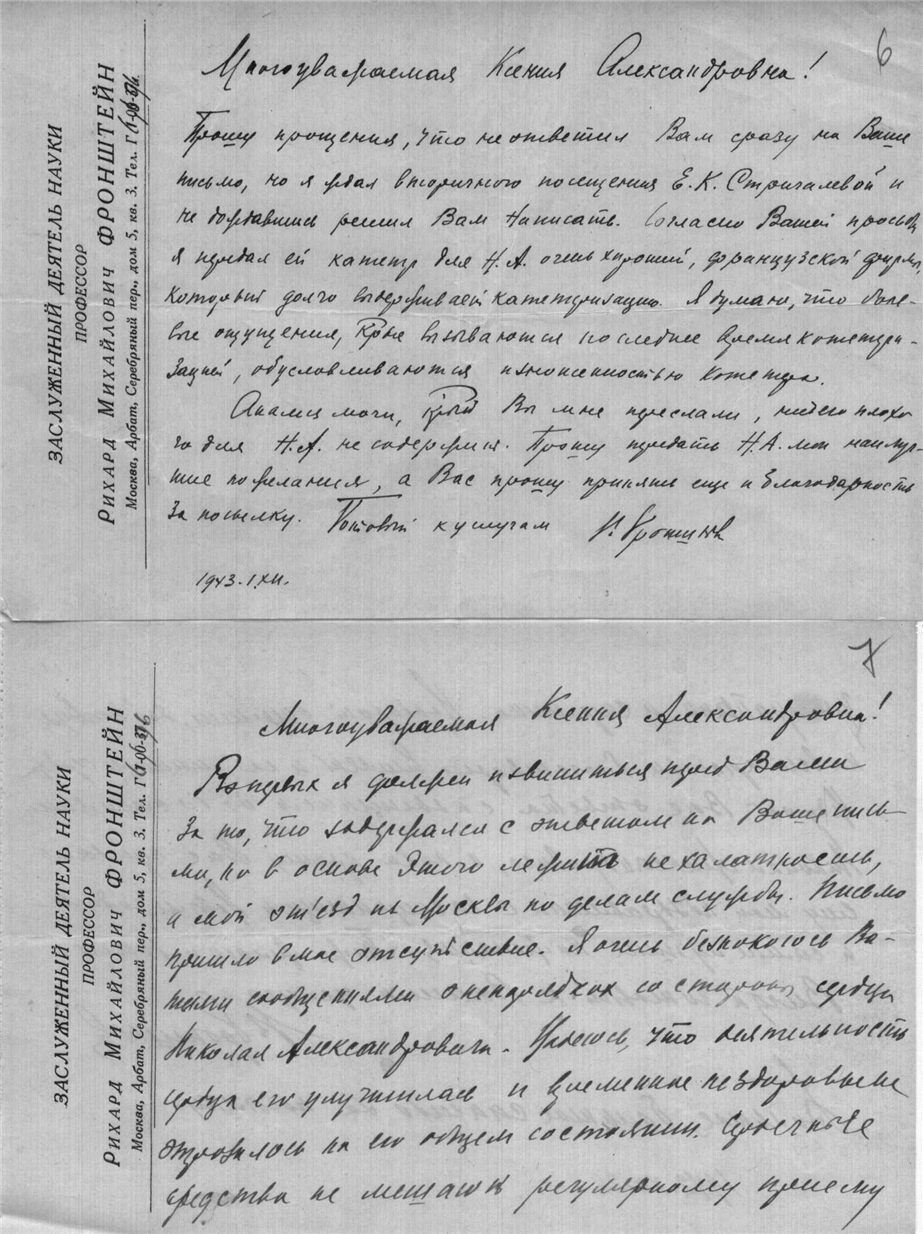 6
ЗАСЛУЖЕННЫЙ ДЕЯТЕЛЬ НАУКИ
ПРОФЕССОР
РИХАРД МИХАЙЛОВИЧ ФРОНШТЕЙН
Москва, Арбат, Серебряный пер., дом 5, кв. 3. Тел. Г
Многоуважаемая Ксения Александровна!
Прошу прощения, что не ответил Вам сразу на Ваше
письмо, но я ждал вторичного посещения Е.К. Стригалевой и
не дождавшись решил Вам написать. Согласно Вашей просьбы
я передал ей катетр для Н.А. очень хороший, французской фирмы,
который долго выдерживает катетризацию. Я думаю, что боле-
вые ощущения, кртые вызываются последнее время катетри-
зацией, обусловливаются изношенностью катетра.
Анализ мочи, крый Вы мне прислали, ничего плохо-
го для Н.А. не содержит. Прошу передать Н.А. мои наилуч-
шие пожелания, а Вас прошу принять еще и благодарность
за посылку. Готовый к услугам Р. Фронштейн
1943.1.XII.
7
ЗАСЛУЖЕННЫЙ ДЕЯТЕЛЬ НАУКИ
ПРОФЕССОР
РИХАРД МИХАЙЛОВИЧ ФРОНШТЕЙН
Москва, Арбат, Серебряный пер., дом 5, кв. 3. Тел. Г
Многоуважаемая Ксения Александровна!
Вопервых я должен извиниться пред Вами
за то, что задержался с ответом на Ваше пись-
мо, но в основе этого лежит не халатность,
а мой от'езд из Москвы по делам службы. Письмо
пришло в мое отсутствие. Я очень безпокоюсь Ва-
шими сообщениями о неполадках со стороны сердца
Николая Александровича. Надеюсь, что деятельность
сердца его улучшилась и временное нездоровье не
отразилось на его общем состоянии. Сердечные
средства не мешают регулярному приему